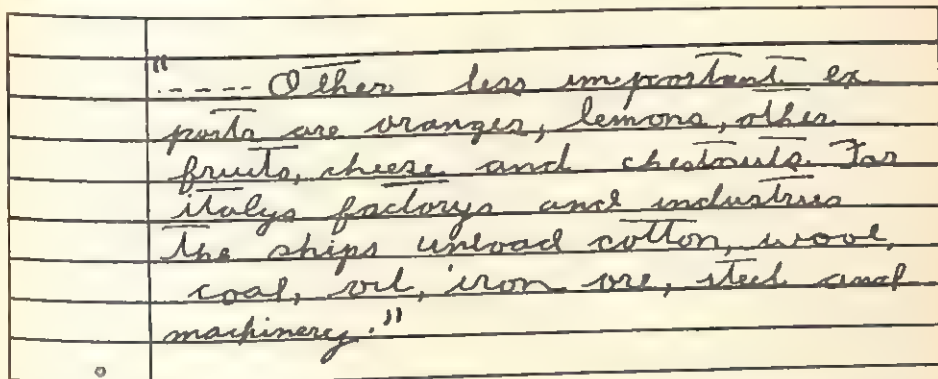 "----- Other less important ex
ports are oranges, lemons, other
fruits, cheese and chestnuts. For
italys factorys and industries
the ships unload cotton, wool,
coal, oil, iron ore, steel and
machinery."